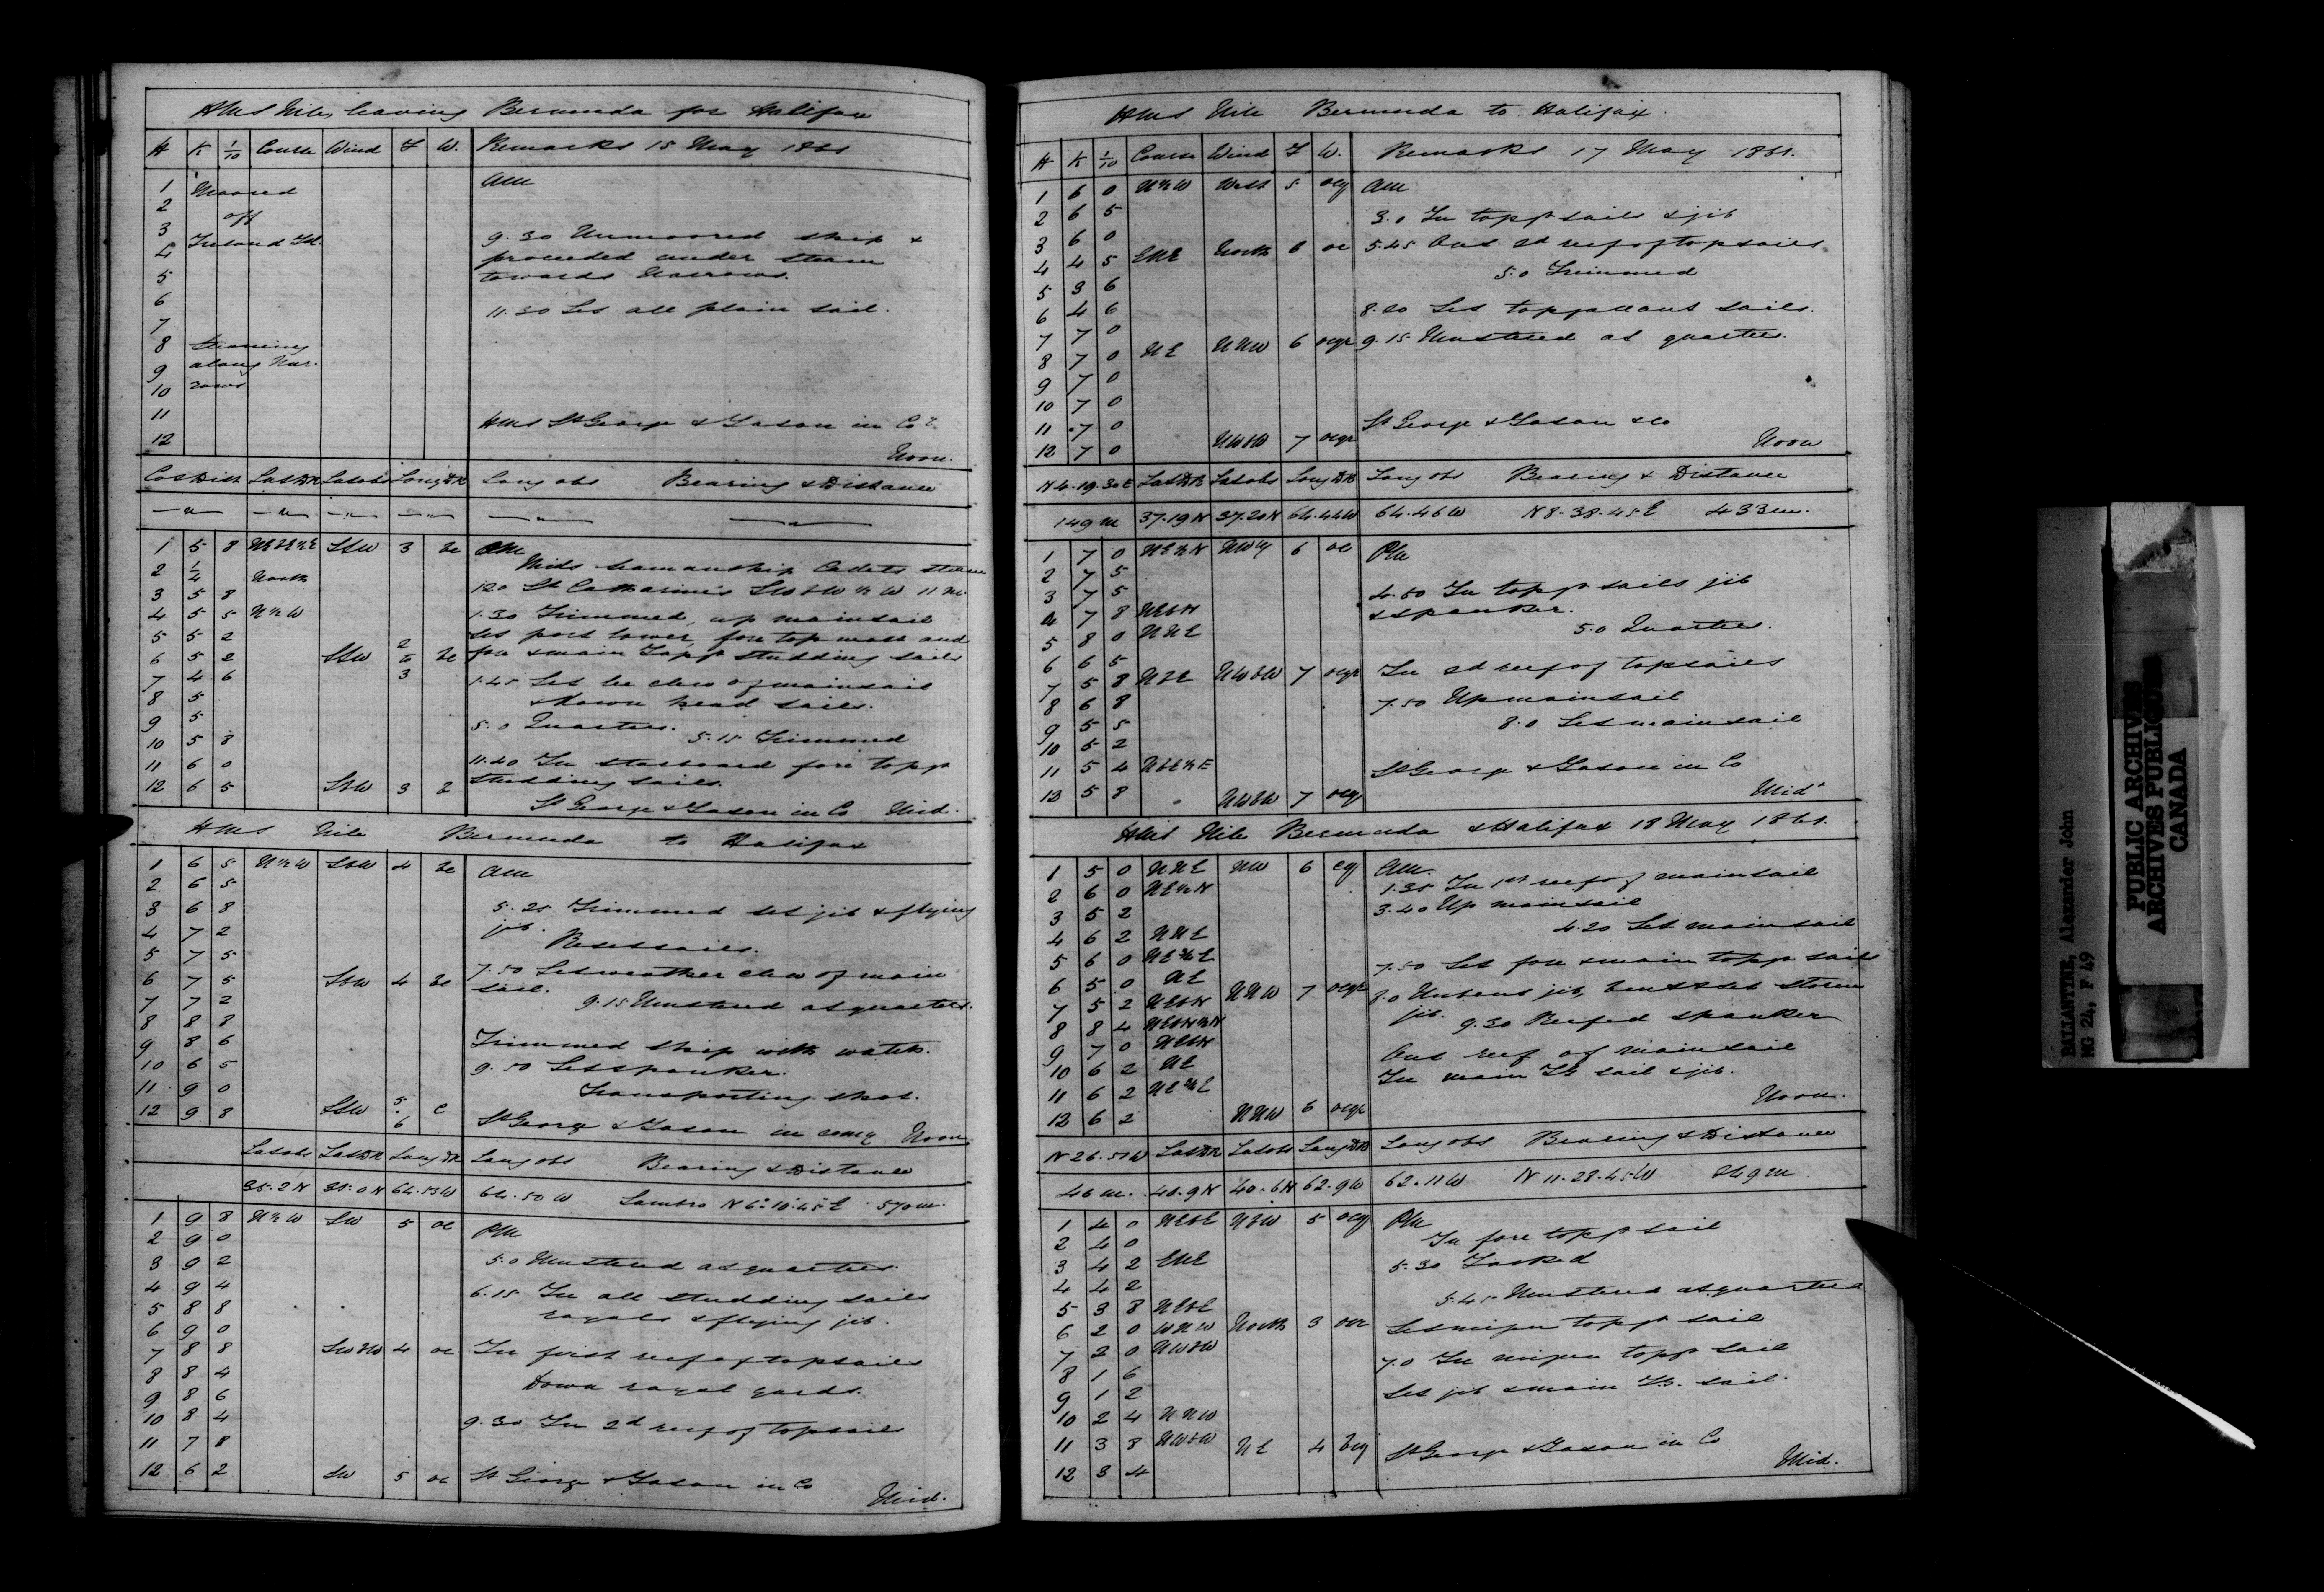 HMS Nile, leaving Bermuda for Halifax
H K 1/10 Course Wind F W. Remarks 15 May 1861
1 Moored AM
2 off
3 Ireland Id. 9.30 Unmoored ship &
4 proceeded under steam
5 towards Narrows.
6 11.30 Set all plain sail.
7
8 Steaming
9 along Nar-
10 rows
11 HMS St George & Jason in Co
12 Noon.
Cos Dist Lat DR Lat obs Long DR Long obs Bearing & Distance
1 5 8 NEbE½E SSW 3 bc PM
Mids seamanship Cadets steam
2 1/4 North 1.20 St Catharine's SWbW½W 11 m.
3 5 8
4 5 5 N½W 1.30 Trimmed, up mainsail
5 5 2 set port lower, fore top mast and
6 5 2 SSW 2 to 3 bc fore & main Topgt studding sails
7 4 6 1.45 Set lee clew of mainsail
8 5 & down head sails.
9 5 5.0 Quarters.
10 5 8 5.15 Trimmed
11 6 0 11.40 In starboard fore topgt
12 6 5 SSW 3 studding sails.
St George & Jason in Co Mid.
HMS Nile Bermuda to Halifax
1 6 5 N½W SSW 4 bc AM
2 6 5
3 6 8 5.25 Trimmed set jib & flying
4 7 2 jib.
5 7 5 Reset sails.
6 7 5 SSW 4 bc 7.50 Set weather clew of main
7 7 2 sail.
8 8 8 9.15 Mustered at quarters.
9 8 6 Trimmed ship with water.
10 6 5 9.50 Set spanker.
11 9 0 Transporting shot.
12 9 8 SSW 5.6 c St George & Jason in comy Noon
Lat obs Lat DR Long DR Long obs Bearing & Distance
35.2 N 35.0 N 64.53 W 64.50 W Sambro N 6°.10.45 E 570 m.
1 9 8 N½W SW 5 oc PM
2 9 0
3 9 2 5.0 Mustered at quarters.
4 9 4
5 8 8 6.15 In all studding sails
6 9 0 royals & flying jib.
7 8 8 SWbW 4 oc In first reef of topsails
8 8 4 Down royal yards.
9 8 6
10 8 4 9.30 In 2d reef of topsails
11 7 8
12 6 2 SW 5 oc St George & Jason in Co Mid.
HMS Nile Bermuda to Halifax.
H K 1/10 Course Wind F W. Remarks 17 May 1861.
1 6 0 N½W West 5 ocq AM
2 6 5 3.0 In topgt sails & jib
3 6 0
4 4 5 ENE North 6 oc 5.45 Out 2d reef of topsails
5 3 6 5.0 Trimmed
6 4 6 8.20 Set topgallant sails.
7 7 0
8 7 0 NE NNW 6 ocqr 9.15 Mustered at quarters.
9 7 0
10 7 0
11 7 0 St George & Jason & co
12 7 0 NWbW 7 ocqr Noon
N 4.19.30 E Lat DR Lat obs Long DR Long obs Bearing & Distance
149 m 37.19 N 37.20 N 64.44 W 64.46 W N 8.38.45 E 433 m.
1 7 0 NE½N NWly 6 oc PM
2 7 5
3 7 5 4.50 In topgt sails jib
4 7 8 NEbN & spanker.
5 8 0 NNE 5.0 Quarters.
6 6 5
7 5 8 NbE NWbW 7 ocqr In 2d reef of topsails
8 6 8 7.50 Up mainsail
9 5 5 8.0 Set mainsail
10 5 2
11 5 4 NbE½E St George & Jason in Co
12 5 8 NWbW 7 ocq Midt
HMS Nile Bermuda & Halifax 18 May 1861.
1 5 0 NNE NW 6 cq AM.
2 6 0 NE½N 1.35 In 1st reef of mainsail
3 5 2 3.40 Up mainsail
4 6 2 NNE 4.20 Set mainsail
5 6 0 NE¾E
6 5 0 NE 7.50 Set fore & main topgt sails
7 5 2 NEbN NNW 7 ocqr 8.0 Unbent jib, bent & set storm
8 8 4 NEbN½N jib. 9.30 Reefed spanker
9 7 0 NEbN
10 6 2 NE Out reef of mainsail
11 6 2 NE¾E In main Tt sail & jib.
12 6 2 NNW 6 ocqr Noon.
N 26.51 W Lat DR Lat obs Long DR Long obs Bearing & Distance
46 m. 40.9 N 40.6 N 62.9 W 62.11 W N 11.28.45 W 269 m
1 4 0 NEbE NbW 5 ocq PM
2 4 0 In fore topgt sail
3 4 2 ENE 5.30 Tacked
4 4 2
5 3 8 NEbE 5.45 Mustered at quarters
6 2 0 WNW North 3 Set mizen topgt sail
7 2 0 NWbW 7.0 In mizen topgt sail
8 1 6
9 1 2 Set jib & main sail.
10 2 4 NNW
11 3 8 NWbW NE 4 bcq St George & Jason in Co
12 3 4 Mid.
BALLANTINE, Alexander John
MG 24, F 49
PUBLIC ARCHIVES
ARCHIVES PUBLIQUES
CANADA